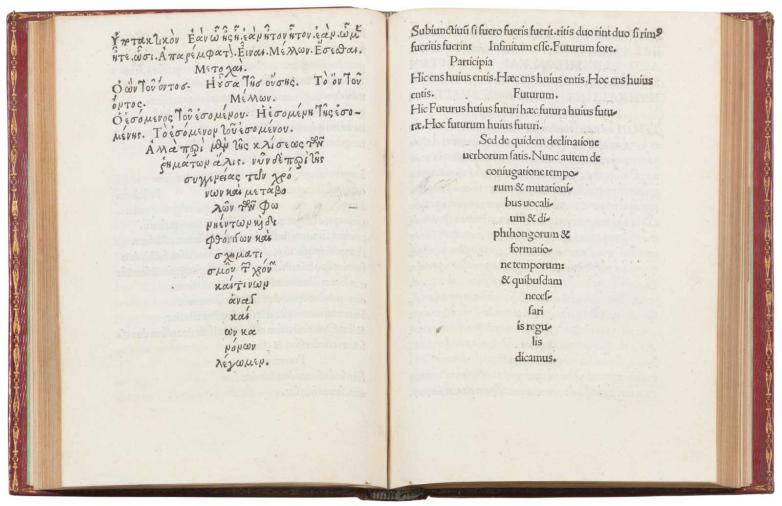 Ὑποτακτικὸν Ἐὰν ὦ ἦς ἦ. ἐὰν ἦτον ἦτον. ἐὰν ὦμεν
ἦτε. ὦσι. Ἀπαρέμφατ. Εἶναι. Μέλλων. Ἔσεσθαι.
Μετοχαὶ.
Ὁ ὢν τοῦ ὄντος. Ἡ οὖσα τῆς οὔσης. Τὸ ὂν τοῦ
ὄντος. Μέλλων.
Ὁ ἐσόμενος τοῦ ἐσομένου. Ἡ ἐσομένη τῆς ἐσο-
μένης. Τὸ ἐσόμενον τοῦ ἐσομένου.
Ἀλλὰ περὶ μὲν τῆς κλίσεως τῶν
ῥημάτων ἅλις. νῦν δὲ περὶ τῆς
συγγενείας τῶν χρό
νων καὶ μεταβο
λῶν τῶν φω
νηέντων καὶ δι
φθόγγων καὶ
σχηματι
σμοῦ τῶν χρόνων
καί τινων
ἀναγ
καί
ων κα
νόνων
λέγωμεν.
Subiunctiuũ si fuero fueris fuerit. ritis duo rint duo si rimꝰ
fueritis fuerint Infinitum esse. Futurum fore.
Participia
Hic ens huius entis. Hæc ens huius entis. Hoc ens huius
entis. Futurum.
Hic Futurus huius futuri hæc futura huius futu-
ræ. Hoc futurum huius futuri.
Sed de quidem declinatione
uerborum satis. Nunc autem de
coniugatione tempo-
rum & mutationi-
bus uocali-
um & di-
phthongorum &
formatio-
ne temporum:
& quibusdam
neces-
sari
is regu-
lis
dicamus.